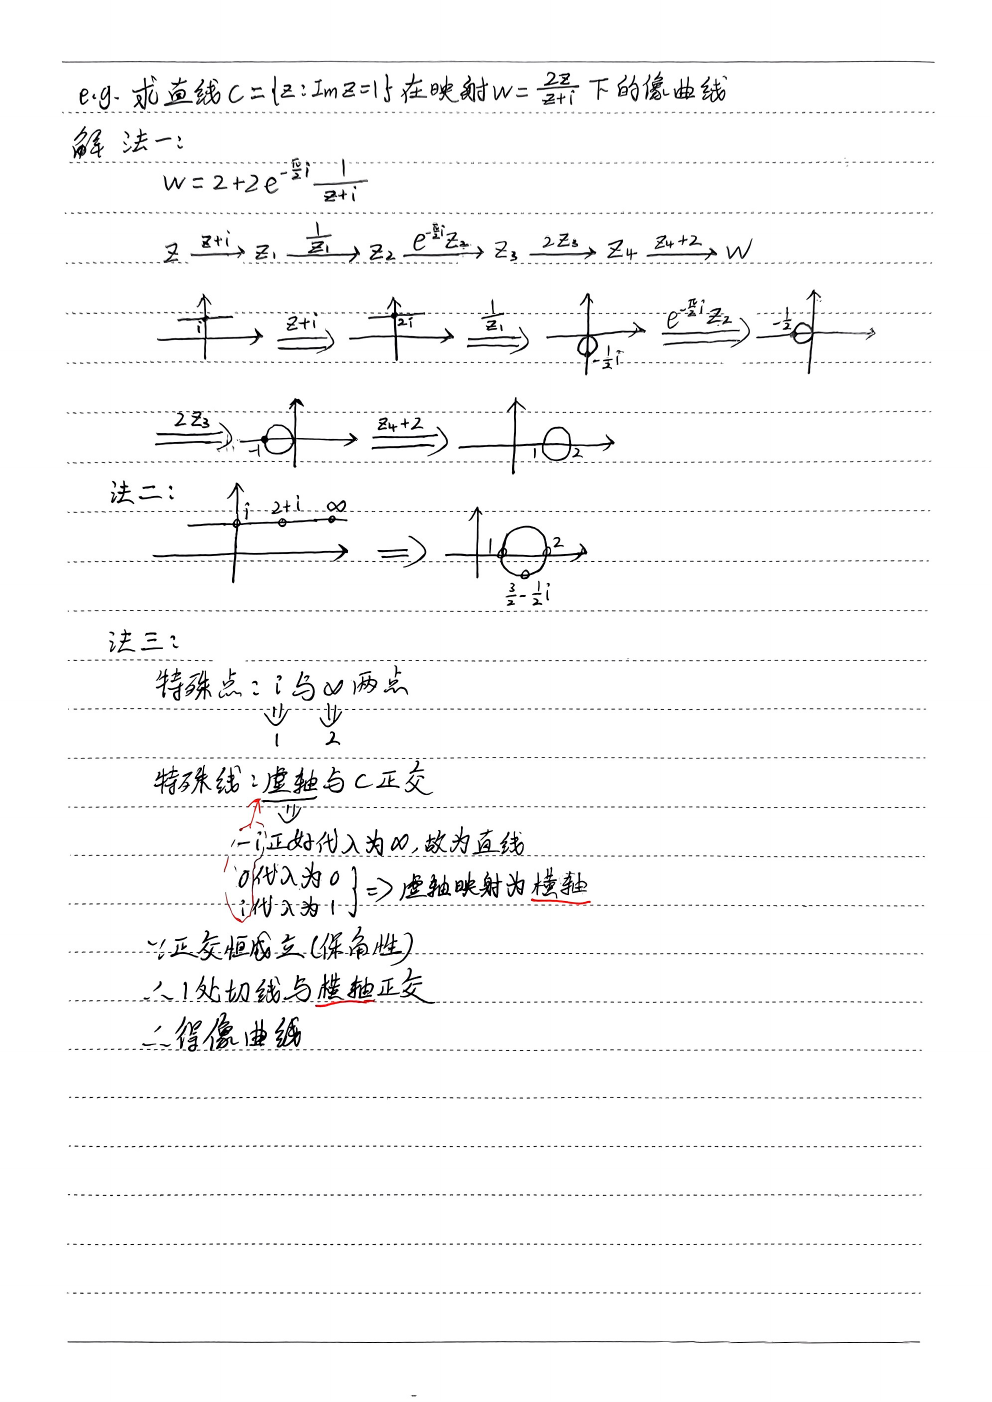 e.g. 求直线C={z:Imz=1}在映射w=2z/(z+i)下的像曲线
解 法一:
w=2+2e^{-π/2 i} 1/(z+i)
z —z+i→ z₁ —1/z₁→ z₂ —e^{-π/2 i}z₂→ z₃ —2z₃→ z₄ —z₄+2→ w
i z+i ⇒ 2i 1/z₁ ⇒ -1/2 i e^{-π/2 i}z₂ ⇒ -1/2
2z₃ ⇒ -1 z₄+2 ⇒ 1 2
法二: i 2+i ∞ ⇒ 1 2
3/2 - 1/2 i
法三:
特殊点: i与∞两点
⇓ ⇓
1 2
特殊线:虚轴与C正交
⇓
-i正好代入为∞,故为直线
0代入为0
i代入为1 } ⇒ 虚轴映射为横轴
∵正交恒成立(保角性)
∴1处切线与横轴正交
∴得像曲线